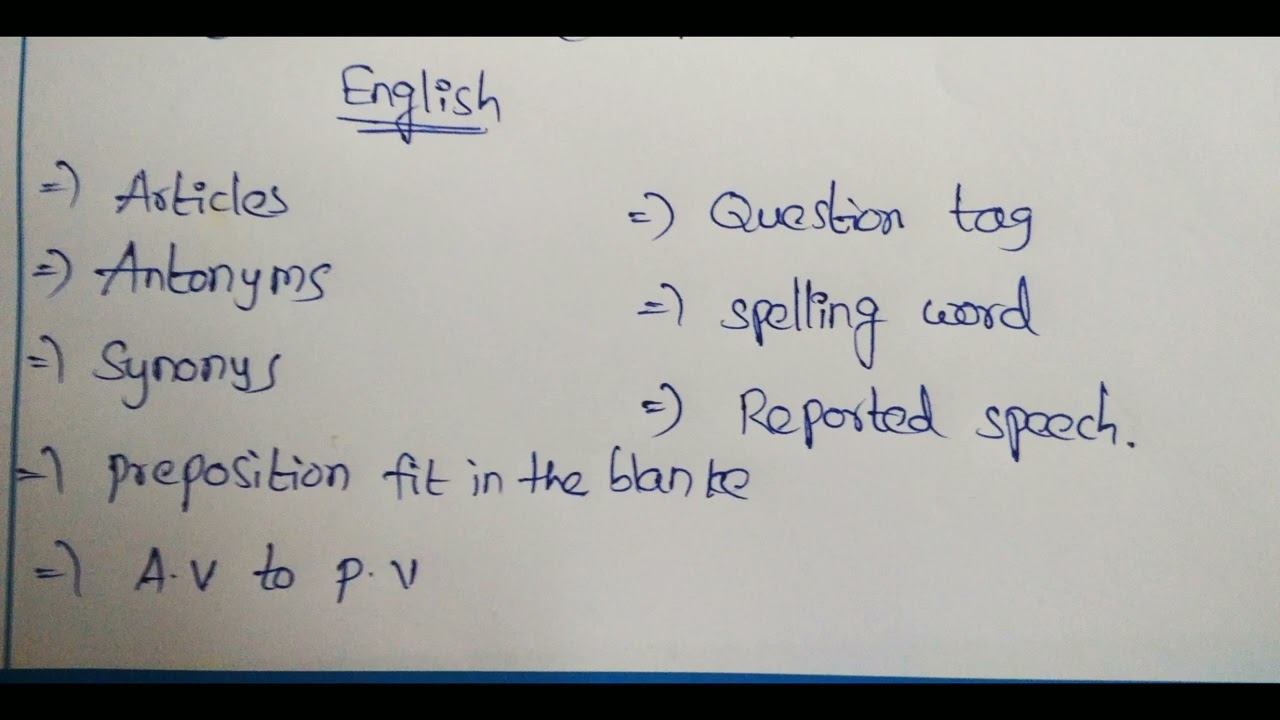 English
=) Articles
=) Antonyms
=) Synonys
=) preposition fit in the blanke
=) A.V to p.v
=) Question tag
=) spelling word
=) Reported speech.